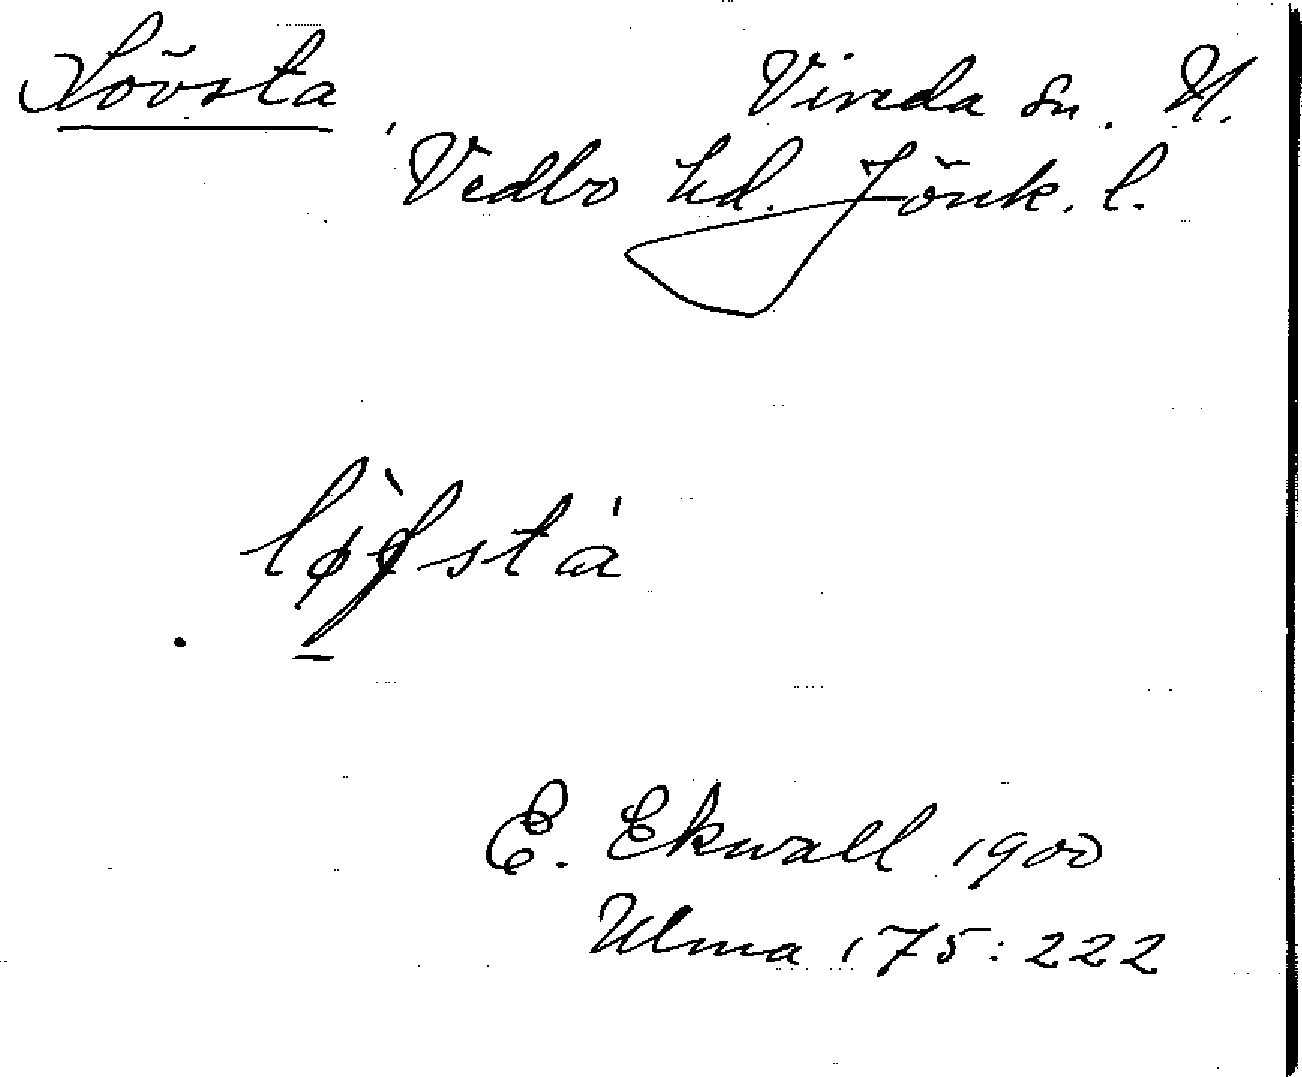 Lövsta Vireda sn. N.
Vedbo hd. Jönk. l.
lø̀fsta̍
E. Ekwall 1900
Ulma 175:222